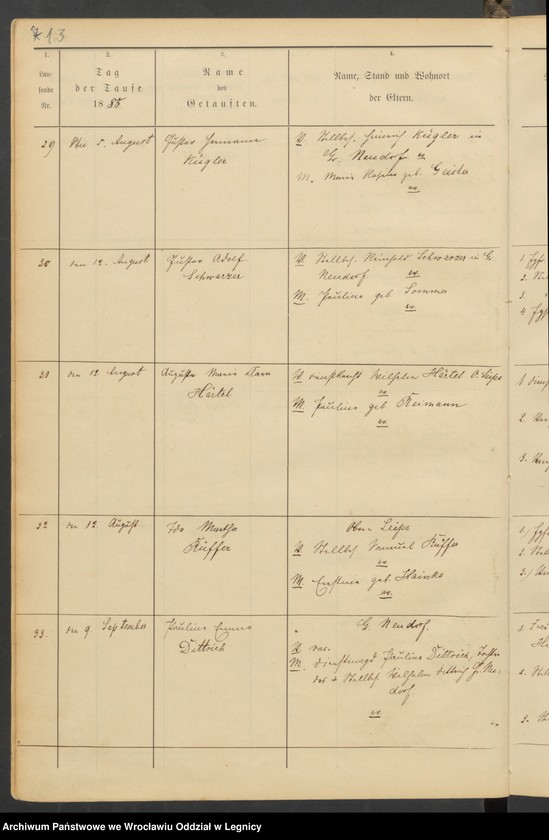 713
1.
Lau-
fende
Nr.
2.
Tag
der Taufe
1885
3.
Name
des
Getauften.
4.
Name, Stand und Wohnort
der Eltern.
29
den 5. August
Gustav Hermann
Kügler
V. Stellbes. Heinrich Kügler in
Gr. Neudorf ev.
M. Maria geb. Geisler
ev.
30
den 12. August
Gustav Adolf
Schwarzer
V. Stellbes. Reinhold Schwarzer in Gr
Neudorf ev.
M. Pauline geb Sommer
ev.
31
den 12. August
Auguste Maria Klara
Härtel
V. Dienstknecht Wilhelm Härtel O. Leipe
ev.
M. Pauline geb Reimann
ev.
32
den 12. August
Ida Martha
Küffer
Ober Leipe
V. Stellbes. Samuel Küffer
ev.
M. Ernstine geb. Hainke
ev.
33.
den 9. September
Pauline Emma
Dittrich
G. Neudorf.
V. vac.
M. Dienstmagd Pauline Dittrich, Tochter
des + Stellbes Wilhelm Dittrich Gr. Neu-
dorf
ev.
Archiwum Państwowe we Wrocławiu Oddział w Legnicy